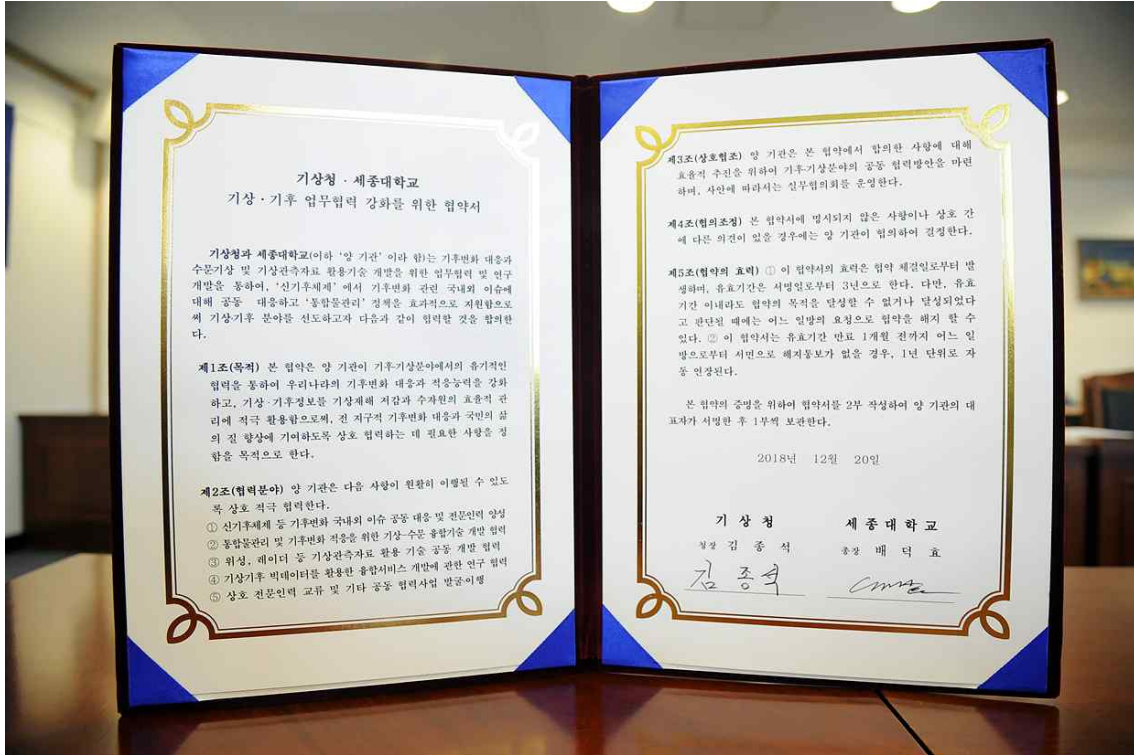 기상청 · 세종대학교
기상 · 기후 업무협력 강화를 위한 협약서
기상청과 세종대학교(이하 '양 기관' 이라 함)는 기후변화 대응과
수문기상 및 기상관측자료 활용기술 개발을 위한 업무협력 및 연구
개발을 통하여, '신기후체제' 에서 기후변화 관련 국내외 이슈에
대해 공동 대응하고 '통합물관리' 정책을 효과적으로 지원함으로
써 기상기후 분야를 선도하고자 다음과 같이 협력할 것을 합의한
다.
제1조(목적) 본 협약은 양 기관이 기후·기상분야에서의 유기적인
협력을 통하여 우리나라의 기후변화 대응과 적응능력을 강화
하고, 기상·기후정보를 기상재해 저감과 수자원의 효율적 관
리에 적극 활용함으로써, 전 지구적 기후변화 대응과 국민의 삶
의 질 향상에 기여하도록 상호 협력하는 데 필요한 사항을 정
함을 목적으로 한다.
제2조(협력분야) 양 기관은 다음 사항이 원활히 이행될 수 있도
록 상호 적극 협력한다.
① 신기후체제 등 기후변화 국내외 이슈 공동 대응 및 전문인력 양성
② 통합물관리 및 기후변화 적응을 위한 기상·수문 융합기술 개발 협력
③ 위성, 레이더 등 기상관측자료 활용 기술 공동 개발 협력
④ 기상기후 빅데이터를 활용한 융합서비스 개발에 관한 연구 협력
⑤ 상호 전문인력 교류 및 기타 공동 협력사업 발굴·이행
제3조(상호협조) 양 기관은 본 협약에서 합의한 사항에 대해
효율적 추진을 위하여 기후·기상분야의 공동 협력방안을 마련
하며, 사안에 따라서는 실무협의회를 운영한다.
제4조(협의조정) 본 협약서에 명시되지 않은 사항이나 상호 간
에 다른 의견이 있을 경우에는 양 기관이 협의하여 결정한다.
제5조(협약의 효력) ① 이 협약서의 효력은 협약 체결일로부터 발
생하며, 유효기간은 서명일로부터 3년으로 한다. 다만, 유효
기간 이내라도 협약의 목적을 달성할 수 없거나 달성되었다
고 판단될 때에는 어느 일방의 요청으로 협약을 해지 할 수
있다. ② 이 협약서는 유효기간 만료 1개월 전까지 어느 일
방으로부터 서면으로 해지통보가 없을 경우, 1년 단위로 자
동 연장된다.
본 협약의 증명을 위하여 협약서를 2부 작성하여 양 기관의 대
표자가 서명한 후 1부씩 보관한다.
2018년 12월 20일
기 상 청 세 종 대 학 교
청장 김 종 석 총장 배 덕 효
김종석